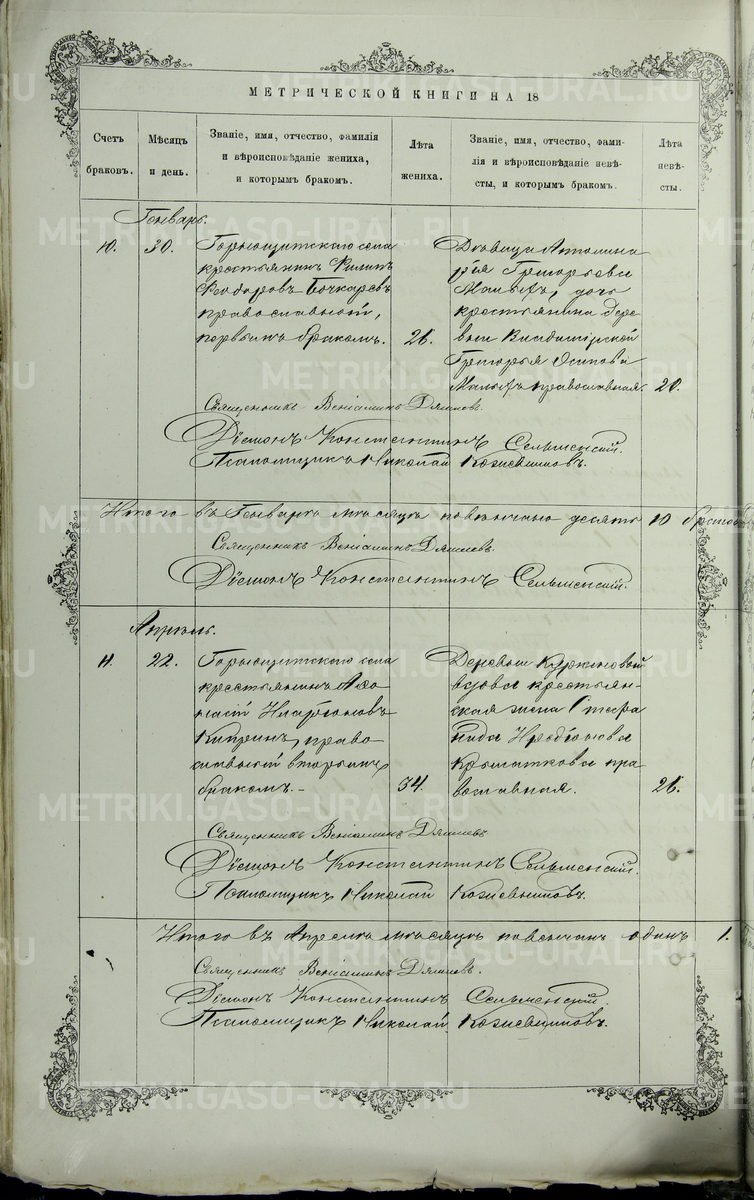 МЕТРИЧЕСКОЙ КНИГИ НА 18
Счетъ браковъ.
Мѣсяцъ и день.
Званіе, имя, отчество, фамилія
и вѣроисповѣданіе жениха,
и которымъ бракомъ.
Лѣта жениха.
Званіе, имя, отчество, фами-
лія и вѣроисповѣданіе невѣ-
сты, и которымъ бракомъ.
Лѣта невѣ-
сты.
Генварь.
10. 30.
Горнощитскаго села
крестьянинъ Филипъ
Феодоровъ Бочкаревъ
православный,
первымъ бракомъ. 26.
Дѣвица Аполлина
рія Григорьева
Малыхъ, дочь
крестьянина дере
вни
Григорья Осипова
Малыхъ православная. 20.
Священникъ Веніаминъ
Діаконъ Константинъ Сельменскій.
Псаломщикъ Николай Кожевниковъ.
Итого въ Генварѣ мѣсяцѣ повѣнчано десять 10 браковъ
Священникъ Веніаминъ
Діаконъ Константинъ Сельменскій.
Апрѣль.
11. 22.
Горнощитскаго села
крестьянинъ Афо
насій Иларіоновъ
Кипринъ, право
славный вторымъ
бракомъ.- 34.
Деревни Курганова
вдова крестьян-
ская жена Стефа
нида Иродіонова
пра
вославная. 26.
Священникъ Веніаминъ
Діаконъ Константинъ Сельменскій.
Псаломщикъ Николай Кожевниковъ.
Итого въ Апрѣлѣ мѣсяцѣ повѣнчан одинъ 1.
Священникъ Веніаминъ
Діаконъ Константинъ Сельменскій.
Псаломщикъ Николай Кожевниковъ.
METRIKI.GASO-URAL.RU